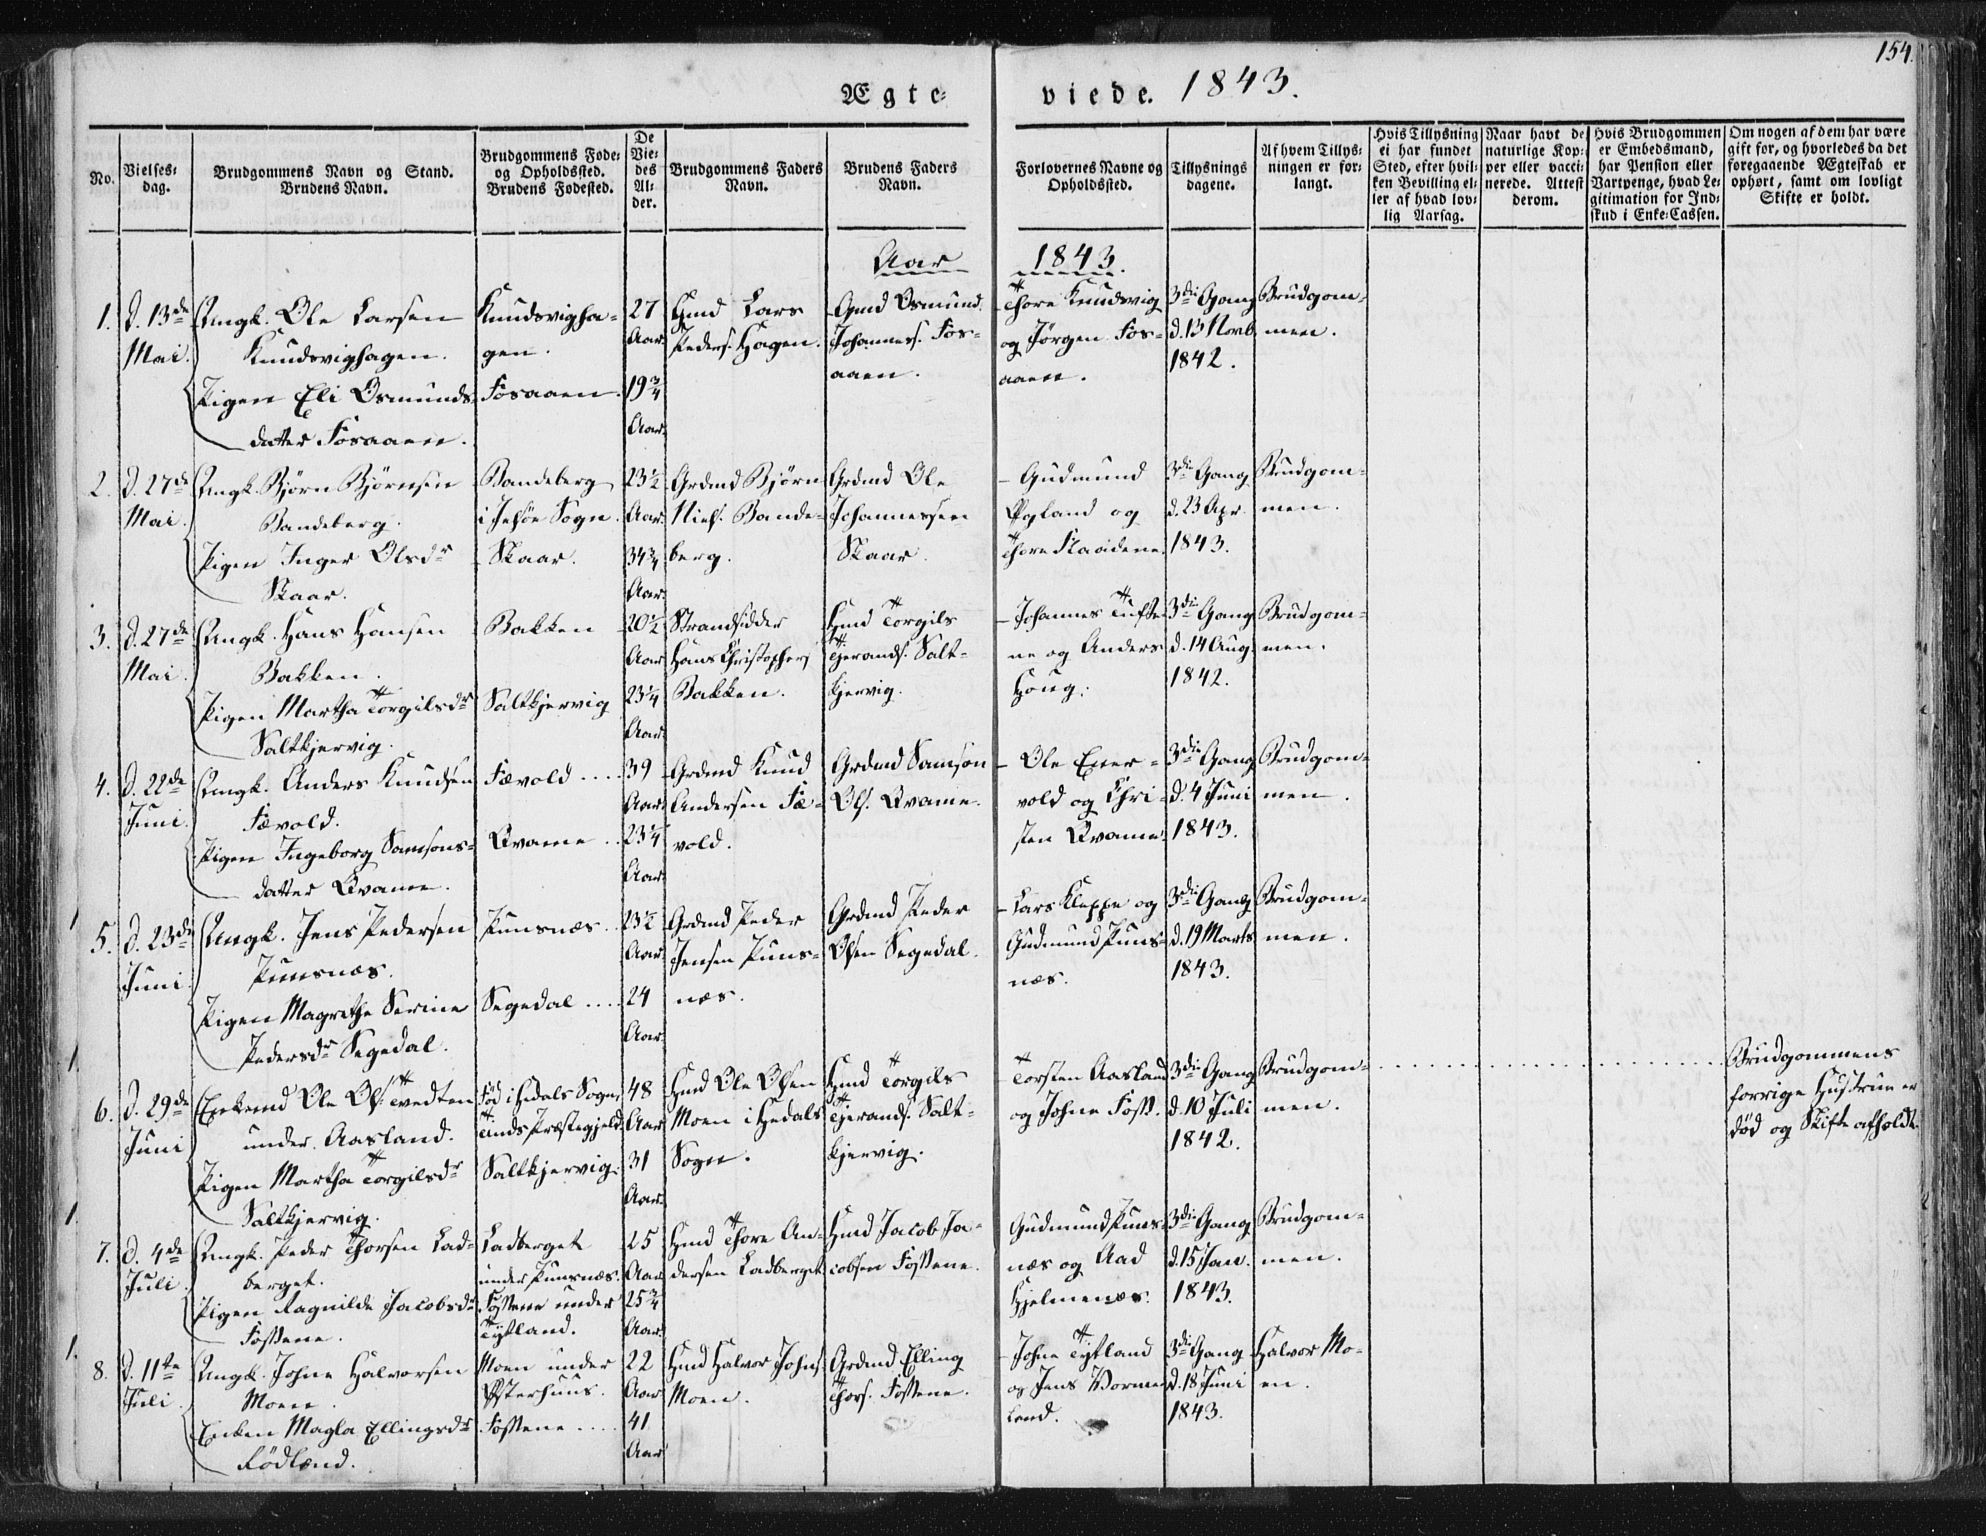 154.
Ægte-
viede. 1843.
No.
Vielses-
dag.
Brudgommens Navn og Stand.
Brudens Navn.
Brudgommens Føde-
og Opholdssted.
Brudens Fødested.
De
Vie-
des
Al-
der.
Brudgommens Faders
Navn.
Brudens Faders
Navn.
Forlovernes Navne og
Opholdssted.
Tillysnings
dagene.
Af hvem Tillys-
ningen er for-
langt.
Hvis Tillysning
ei har fundet
Sted, efter hvil-
ken Bevilling el-
ler af hvad lov-
lig Aarsag.
Naar havt de
naturlige Kop-
per eller vacci-
nerede. Attest
derom.
Hvis Brudgommen
er Embedsmand,
har Pension eller
Vartpenge, hvad Le-
gitimation for Ind-
skud i Enke-Cassen.
Om nogen af dem har være
gift før, og hvorledes da det
foregaaende Ægteskab er
ophørt, samt om lovligt
Skifte er holdt.
Aar 1843.
1.
d. 13de
Mai.
Ungk. Ole Larsen
Knudsvighagen.
Pigen Eli Osmunds-
datter Fosaaen.
Knudsvigha-
gen.
Fosaaen.
27
Aar
19 3/4
Aar.
Hmd Lars
Peders. Hagen.
Gmd Osmund
Johannes. Fos-
aaen.
Thore Knudsvig
og Jørgen Fos-
aaen.
3die Gang
d. 13 Novb.
1842.
Brudgom-
men.
2.
d. 27de
Mai.
Ungk. Bjørn Bjørnsen
Bandeberg.
Pigen Inger Olsdr
Skaar.
Bandeberg
i Jelsøe Sogn.
Skaar.
23 1/2
Aar.
34 3/4
Aar.
Grdmd Bjørn
Niels. Bande-
berg.
Grdmd Ole
Johannessen
Skaar.
Gudmund
og
Thore
3die Gang
d. 23 Apr.
1843.
Brudgom-
men.
3.
d. 27de
Mai.
Ungk. Hans Hansen
Bakken.
Pigen Martha Torgilsdr
Saltkjervig.
Bakken
Saltkjervig
20 1/2
Aar
23 1/4
Aar.
Strandsidder
Hans Christophers
Bakken.
Hmd Torgils
Tjerands. Salt-
kjervig.
Johannes Tufte-
ne og Anders
Houg.
3die Gang
d. 14 Aug.
1842.
Brudgom-
men.
4.
d. 22de
Juni.
Ungk. Anders Knudsen
Fævold.
Pigen Ingeborg Samsons-
datter Kvame.
Fævold ....
Kvame ..
39
Aar.
23 1/4
Aar.
Grdmd Knud
Andersen Fæ-
vold.
Grdmd Samson
Ols. Kvame.
Ole Ener-
vold og Chri-
sten Kvame.
3die Gang
d. 4 Juni
1843.
Brudgom-
men.
5.
d. 23de
Juni
Ungk. Jens Pedersen
Punsnæs.
Pigen Magrethe Serine
Pedersdr Segedal.
Punsnæs.
Segedal ....
23 1/2
Aar.
24
Aar.
Grdmd Peder
Jensen Puns-
næs.
Grdmd Peder
Olsen Segedal.
Lars Kleppe og
Gudmund Puns-
næs.
3die Gang
d. 19 Marts
1843.
Brudgom-
men.
6.
d. 29de
Juni
Enkemd Ole Ols. Tvedten
under Aasland.
Pigen Martha Torgilsdr
Saltkjervig.
Fød i Hedals Sogn,
Tinds Præstegjeld.
Saltkjervig.
48
Aar
31
Aar.
Hmd Ole Olsen
Moen i Hedals
Sogn.
Hmd Torgils
Tjerands. Salt-
kjervig.
Torsten Aasland
og Johne Foss.
3die Gang
d. 10 Juli
1842.
Brudgom-
men.
Brudgommens
forrige Hustrue er
død og Skifte afholdt.
7.
d. 4de
Juli.
Ungk. Peder Thorsen Lad-
berget.
Pigen Ragnilde Jacobsdr
Fossene.
Ladberget
under Punsnæs.
Fossene under
Tytland.
25
Aar
25 3/4
Aar.
Hmd Thore An-
dersen Ladberget
Hmd Jacob Ja-
cobsen Fossene.
Gudmund Puns-
næs og Aad
Hjelmenæs.
3die Gang
d. 15 Jan.
1843.
Brudgom-
men.
8.
d. 11te
Juli.
Ungk. Johne Halvorsen
Moen.
Enken Magla Ellingsdr
Rødland.
Moen under
Østerhuus.
Fossene ....
22
Aar
41
Aar
Hmd Halvor Johns.
Moen.
Grdmd Elling
Thors. Fossene.
Johne Tytland
og Jens Vorme-
land.
3die Gang
d. 18 Juni
1843.
Halvor Mo-
en.